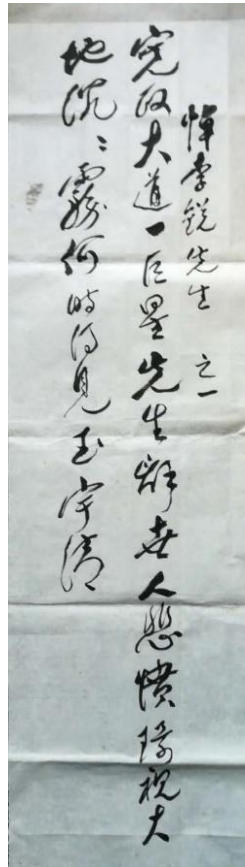 悼李锐先生 之一
宪政大道一巨星先生辞世人悲愤环视大
地沉々雾何时得见玉宇清